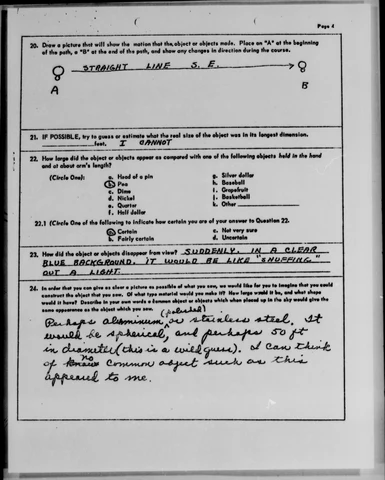 Page 4
20. Draw a picture that will show the motion that the object or objects made. Place an "A" at the beginning
of the path, a "B" at the end of the path, and show any changes in direction during the course.
STRAIGHT LINE S. E.
A B
21. IF POSSIBLE, try to guess or estimate what the real size of the object was in its longest dimension.
feet. I CANNOT
22. How large did the object or objects appear as compared with one of the following objects held in the hand
and at about arm's length?
(Circle One): a. Head of a pin g. Silver dollar
b. Pea h. Baseball
c. Dime i. Grapefruit
d. Nickel j. Basketball
e. Quarter k. Other
f. Half dollar
22.1 (Circle One of the following to indicate how certain you are of your answer to Question 22.
a. Certain c. Not very sure
b. Fairly certain d. Uncertain
23. How did the object or objects disappear from view? SUDDENLY. IN A CLEAR
BLUE BACKGROUND. IT WOULD BE LIKE "SNUFFING"
OUT A LIGHT.
24. In order that you can give as clear a picture as possible of what you saw, we would like for you to imagine that you could
construct the object that you saw. Of what type material would you make it? How large would it be, and what shape
would it have? Describe in your own words a common object or objects which when placed up in the sky would give the
same appearance as the object which you saw.
(polished)
Perhaps aluminum, or stainless steel. It
would be spherical, and perhaps 50 ft
in diameter (this is a wild guess). I can think
of no common object such as this
appeared to me.